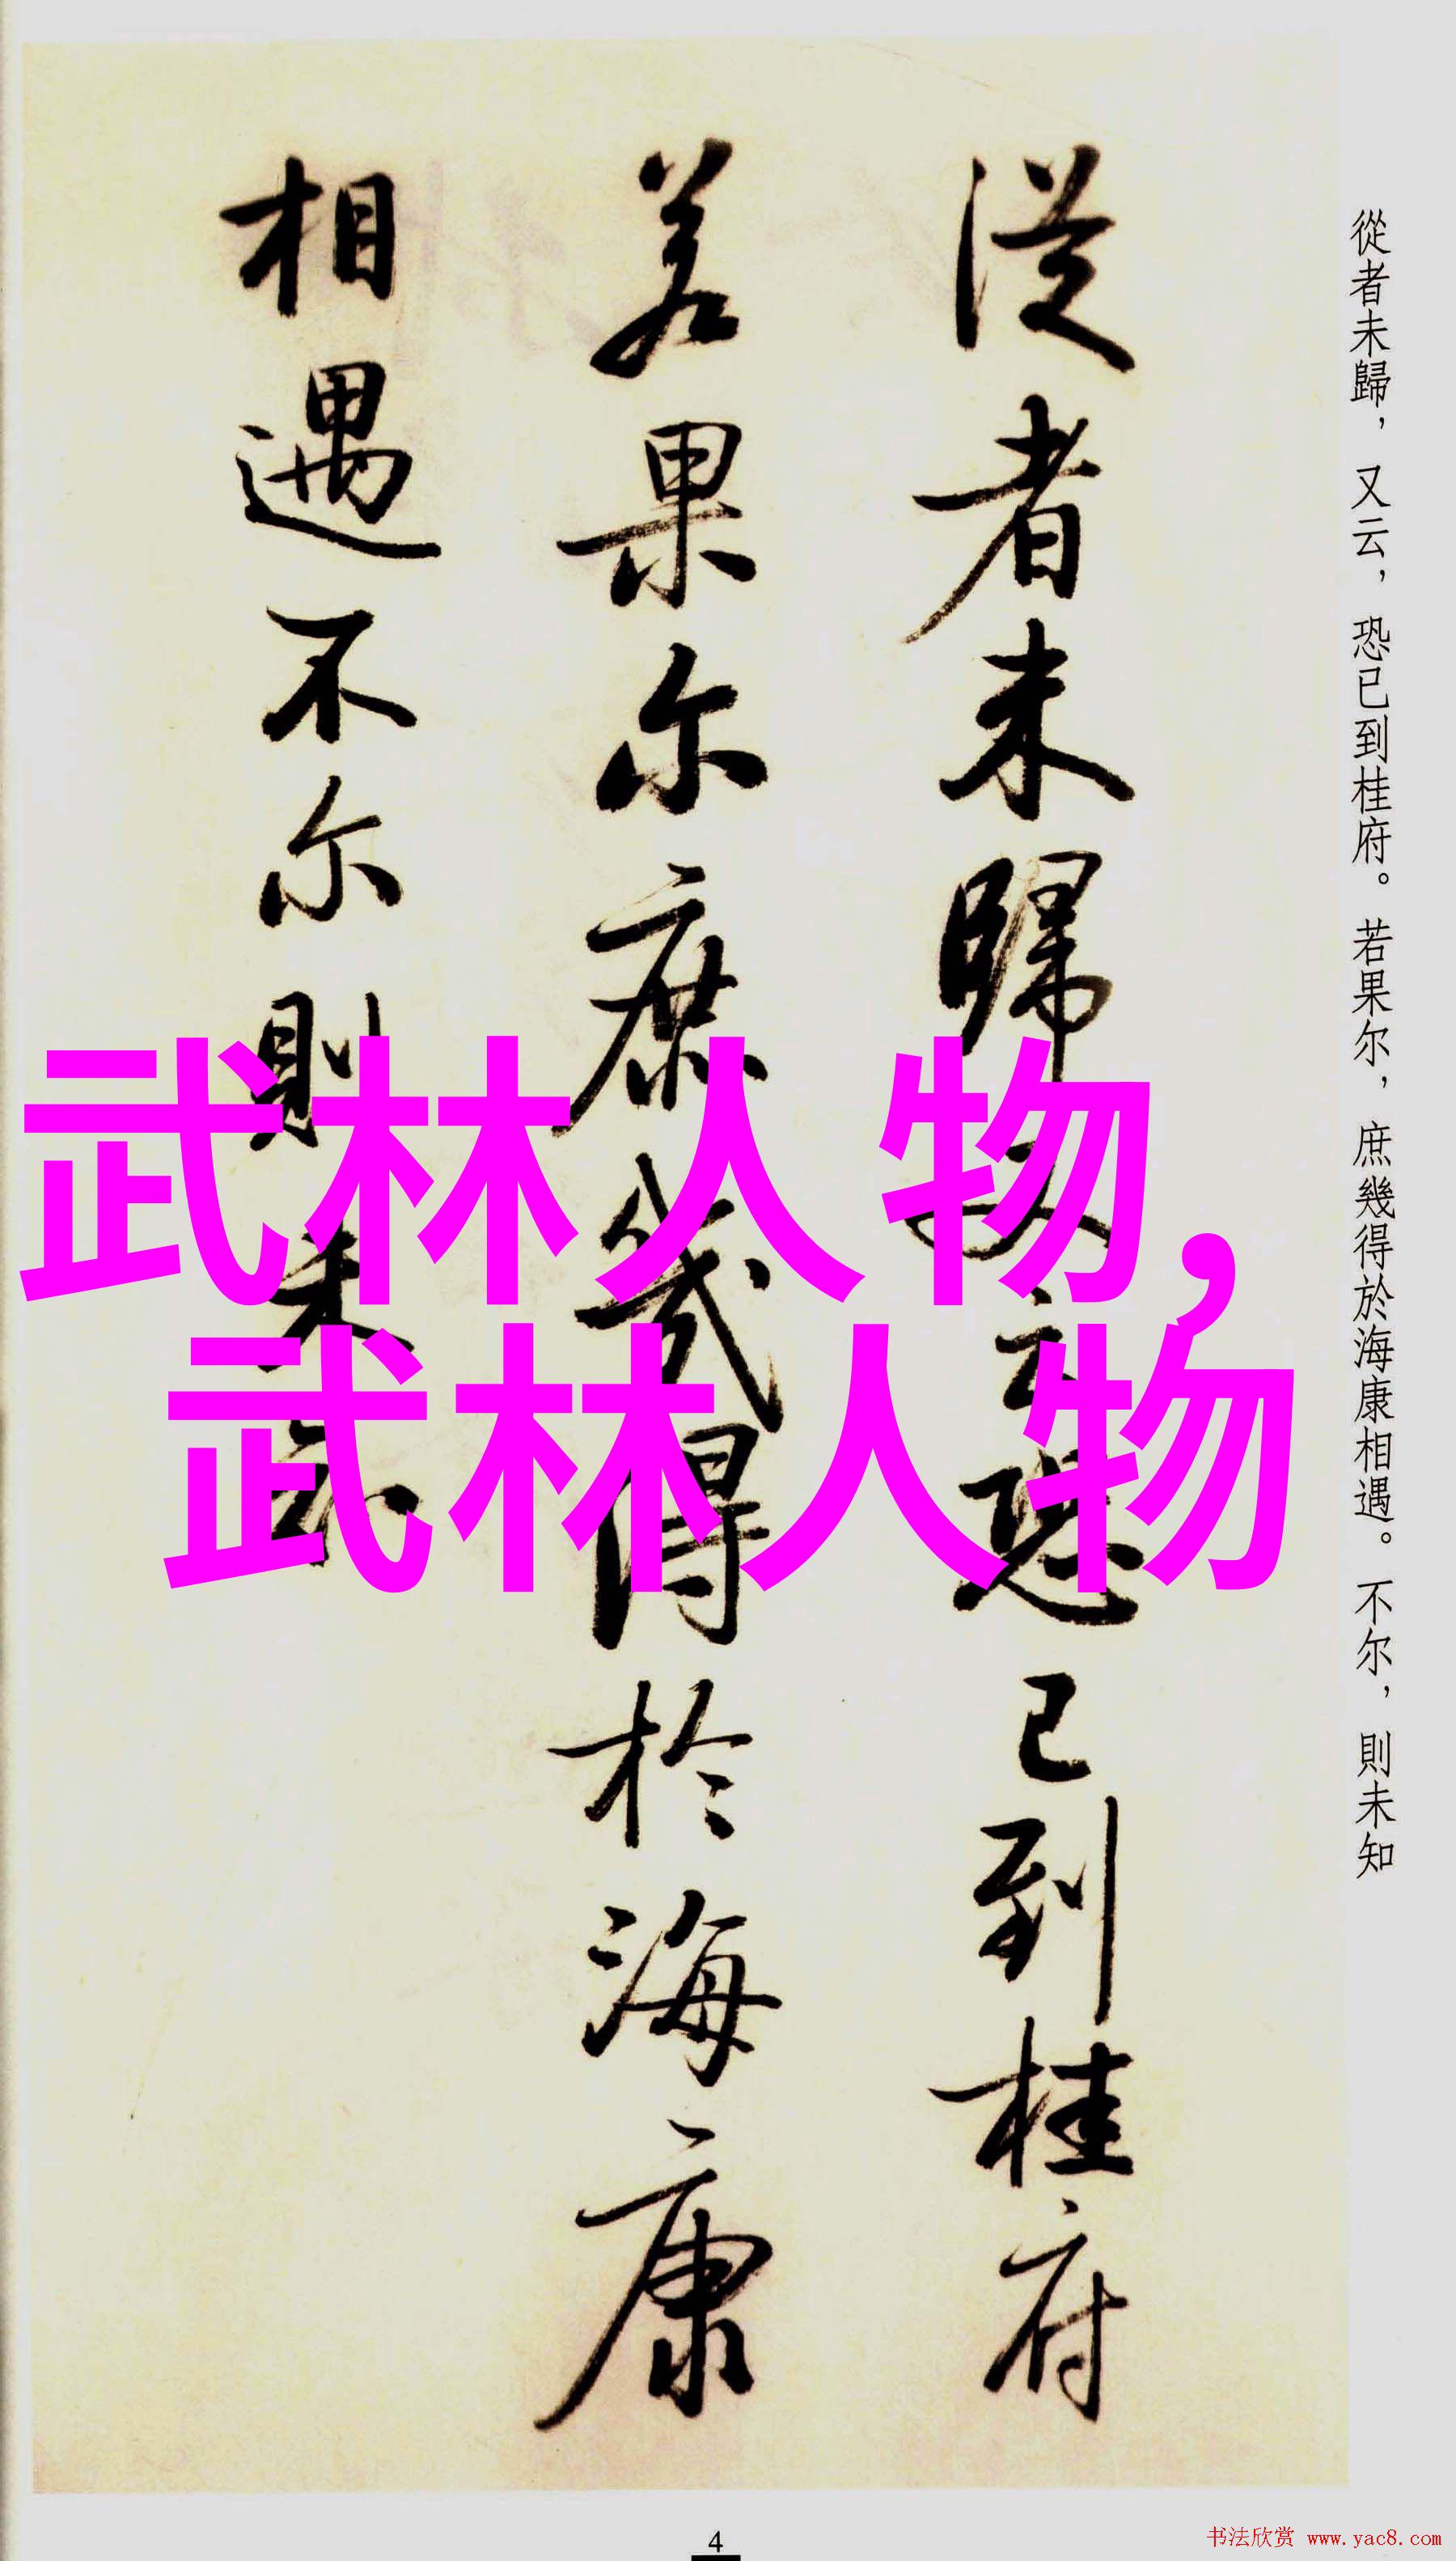 從者未歸，又云，恐已到桂府。若果尔，庶幾得於海康相遇。不尔，則未知
從者未歸又云恐已到桂府
若果尔庶幾得於海康
相遇不尔則未知
武林人物，
武林人物
4
书法欣赏 www.yac8.com